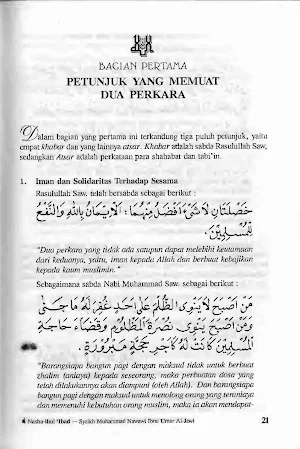 BAGIAN PERTAMA
PETUNJUK YANG MEMUAT
DUA PERKARA
Dalam bagian yang pertama ini terkandung tiga puluh petunjuk, yaitu
empat khabar dan yang lainnya atsar. Khabar adalah sabda Rasulullah Saw,
sedangkan Atsar adalah perkataan para shahabat dan tabi'in.
1. Iman dan Solidaritas Terhadap Sesama
Rasulullah Saw. telah bersabda sebagai berikut :
خَصْلَتَانِ لَا شَيْءَ أَفْضَلُ مِنْهُمَا : اَلْإِيْمَانُ بِاللّٰهِ وَالنَّفْعُ
لِلْمُسْلِمِيْنَ.
"Dua perkara yang tidak ada satupun dapat melebihi keutamaan
dari keduanya, yaitu, iman kepada Allah dan berbuat kebajikan
kepada kaum muslimin."
Sebagaimana sabda Nabi Muhammad Saw. sebagai berikut :
مَنْ أَصْبَحَ لَا يَنْوِى الظُّلْمَ عَلَى أَحَدٍ غُفِرَ لَهُ مَا جَنَى
وَمَنْ أَصْبَحَ يَنْوِى نُصْرَةَ الْمَظْلُوْمِ وَقَضَاءَ حَاجَةِ
الْمُسْلِمِيْنَ كَانَتْ لَهُ كَأَجْرِ حَجَّةٍ مَبْرُوْرَةٍ.
"Barangsiapa bangun pagi dengan maksud tidak untuk berbuat
zhalim (aniaya) kepada seseorang, maka perbuatan dosa yang
telah dilakukannya akan diampuni (oleh Allah). Dan barangsiapa
bangun pagi dengan maksud untuk menolong orang yang teraniaya
dan memenuhi kebutuhan orang muslim, maka ia akan mendapat-
Nasha-ihul 'Ibad — Syeikh Muhammad Nawawi Ibnu Umar Al-Jawi 21